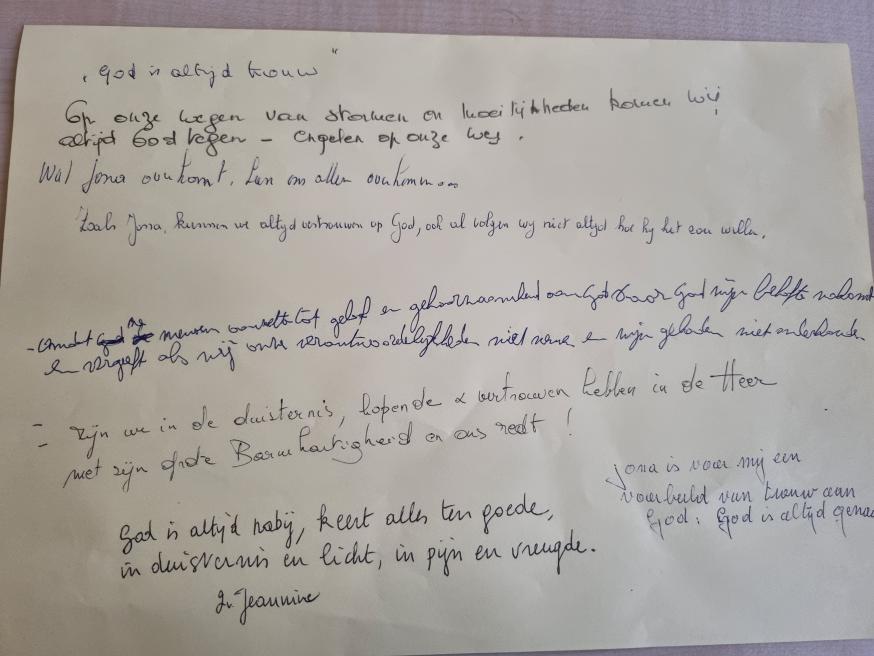 „God is altijd trouw"
Op onze wegen van stormen en moeilijkheden komen wij
altijd God tegen – engelen op onze weg.
Wat Jona overkomt, kan ons allen overkomen...
Zoals Jona, kunnen we altijd vertrouwen op God, ook al volgen wij niet altijd hoe hij het zou willen.
- Omdat de mensen tot geloof en gehoorzaamheid aan God God mijn belofte nakomt
en vergeeft als wij onze verantwoordelijkheden niet nemen en mijn geboden niet onderhouden.
- Zijn we in de duisternis, hopende & vertrouwen hebben in de Heer
met zijn grote Barmhartigheid en ons redt !
Jona is voor mij een
voorbeeld van trouw aan
God: God is altijd
God is altijd nabij, keert alles ten goede,
in duisternis en licht, in pijn en vreugde.
Zr Jeannine